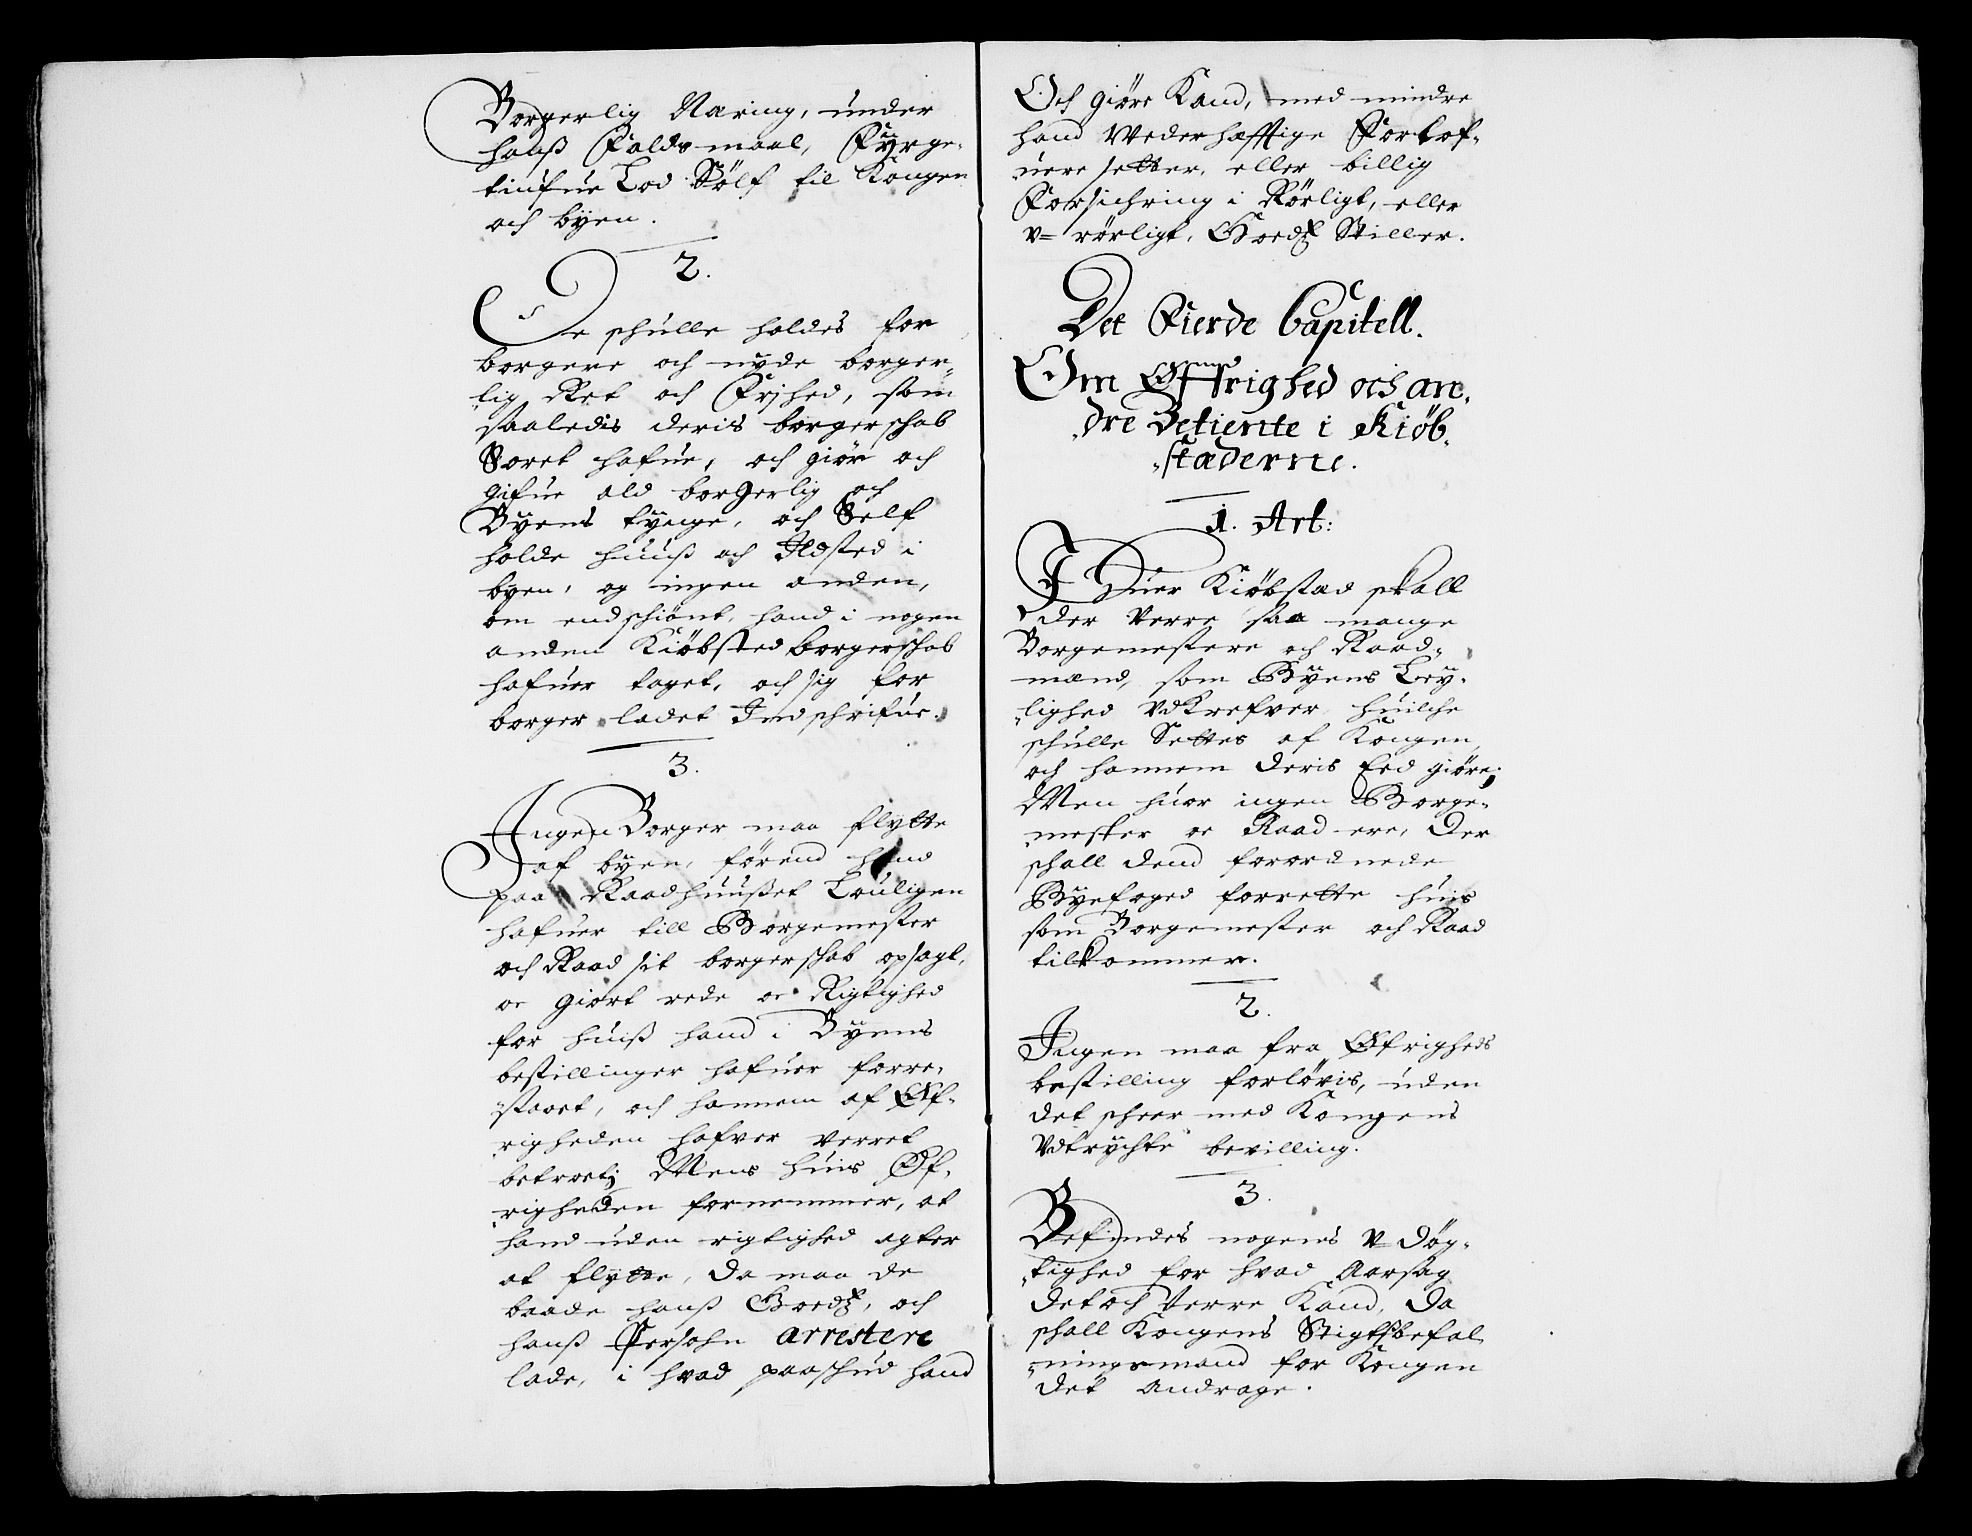 Borgerlig Næring, under
hanß Faldsmaal, Fyrge-
tiufue Lod Sølf til Kongen
och byen.
2.
De schulle holdes for
borgere och nyde borger-
lig Ret och Frjhed, som
saaledis deris borgerschab
Soret hafue, och giør och
gifue ald borgerlig och
Byens tynge, och Self
holde huuß och Ildsted i
byen, og ingen anden,
om endschiønt hand i nogen
anden Kiøbsted borgerschab
hafuer taget, och sig for
borger ladet Indschrifue.
3.
Ingen Borger maa flytte
af byen, førend hand
paa Raadhuußet Louligen
hafuer till Borgemester
och Raad sit borgerschab opsagt,
oc giort rede oc Rigtighed
for huiß hand i Byens
bestillinger hafuer forre-
staaet, och hannem af Øf-
righeden hafver verret
betroet; Mens huis Øf-
righeden fornemmer, at
hand uden rigtighed agter
at flytte, da maa de
baade hanß Goedz, och
hanß Persohn arrestere
lade, i hvad paaschud hand
Och giøre Kand, med mindre
hand Wederhæfftige Forlof-
uere setter, eller billig
Forsichring i Rørligt, eller
v= rørligt, Goedz Stiller.
Det Fierde Capitell.
Om Øffrighed och an-
dre Betiente i Kiøb-
stæderne.
1. Art:
I Huer Kiøbstad skall
der verre saa mange
Borgemestere och Raad-
mænd, som Byens Ley-
lighed Vdkrefver, huilche
schulle Settes af Kongen,
och hannem deris Eed giøre;
Men huor ingen Borge-
mester oc Raad ere, Der
schall dend forordnede
Byefoged forrette huis
som Borgemester och Raad
tilkommer.
2.
Ingen maa fra Øfrigheds
bestilling forløvis, uden
det scheer med Kongens
Vdtrychte bevilling.
3.
Befindes nogens v= døg-
tighed for hvad Aarsag
det och Verre Kand, Da
schall Kongens Stigtsbefal
ningsmand for Kongen
det Andrage.